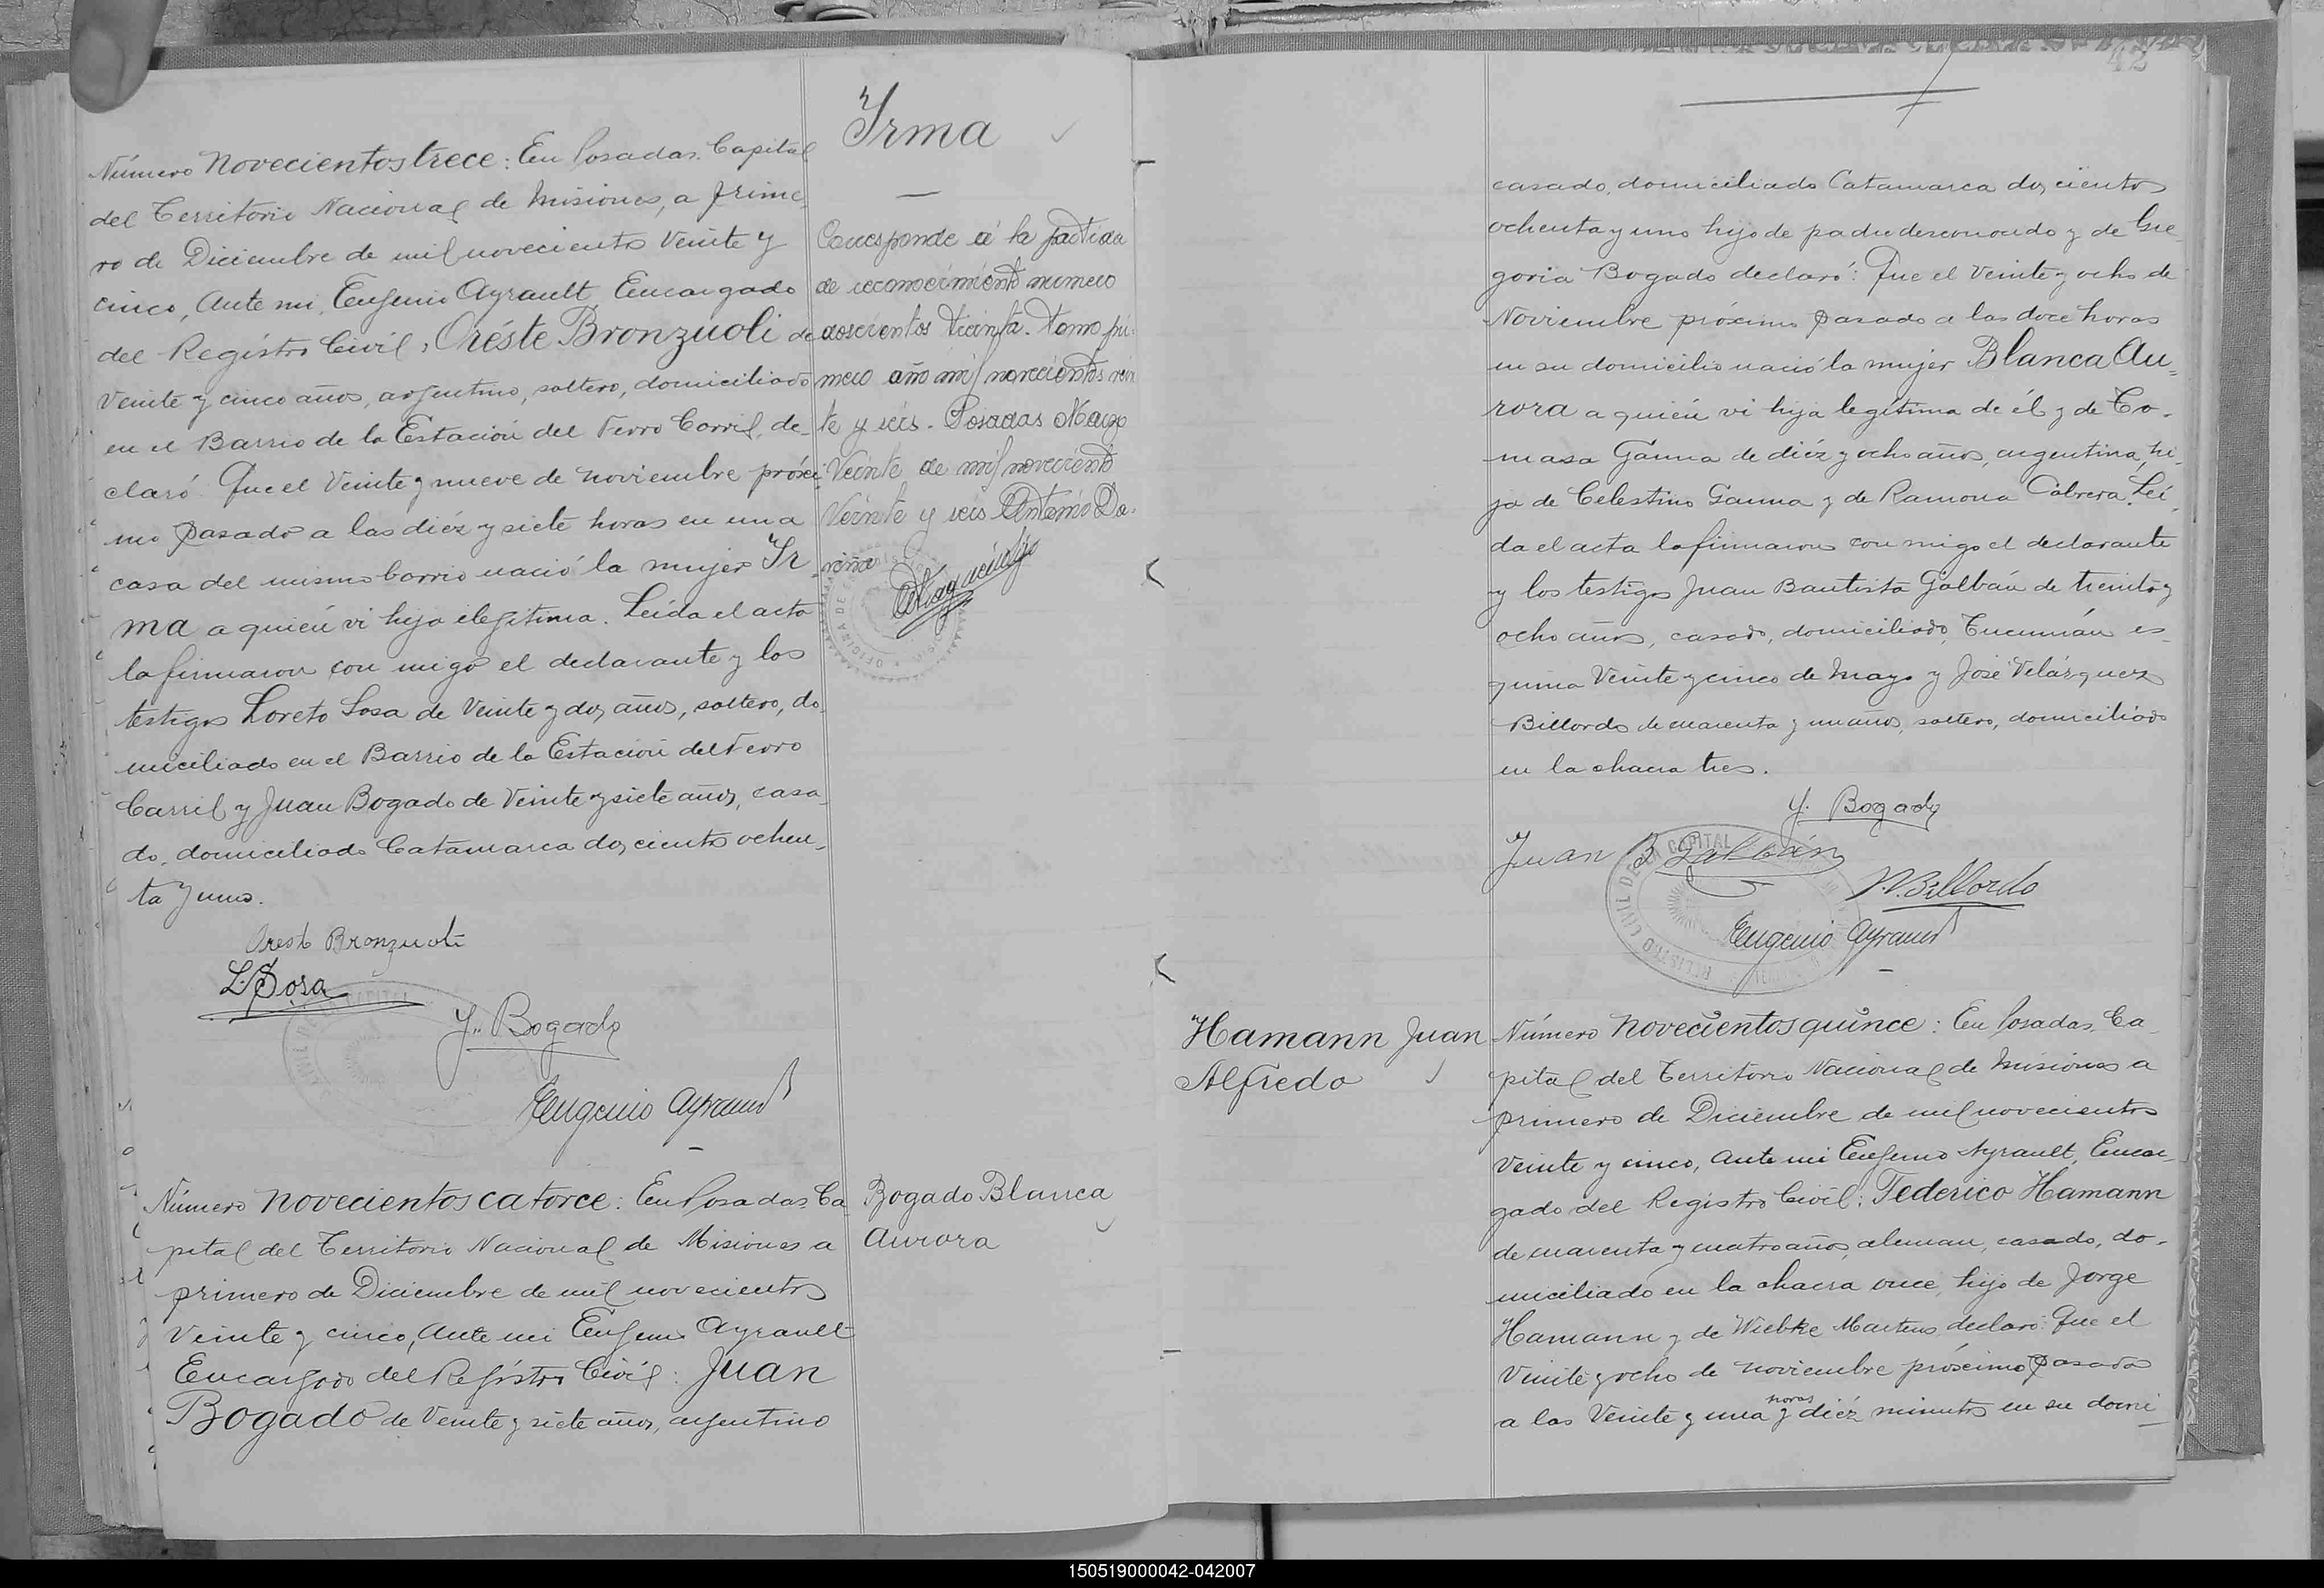 Número Novecientos trece: En Posadas, Capital
del Territorio Nacional de Misiones, a prime
ro de Diciembre de mil novecientos Veinte y
cinco, Ante mi, Eugenio Ayrault, Encargado
del Registro Civil, Oréste Bronzuoli de
Veinte y cinco años, argentino, soltero, domiciliado
en el Barrio de la Estación del Ferro Carril, de-
claró: Que el Veinte y nueve de noviembre próxi
mo pasado a las diéz y siete horas en una
casa del mismo barrio nació la mujer Ir
ma a quién vi hija ilegítima. Leída el acta
la firmaron con migo el declarante y los
testigos Loreto Sosa de Veinte y dos años, soltero, do
miciliado en el Barrio de la Estación del Ferro
Carril y Juan Bogado de Veinte y siete años, casa
do, domiciliado Catamarca doscientos ochen
ta y uno.
Oreste Bronzuoli
L. Sosa
J. Bogado
Eugenio Ayrault
Irma
Corresponde a la partida
de reconocimiento numero
doscientos treinta. tomo pri-
mero año mil novecientos vein
te y seis. Posadas Mayo
Veinte de mil noveciento
Veinte y seis Antonio Da.
Número Novecientos catorce: En Posadas, Ca
pital del Territorio Nacional de Misiones a
primero de Diciembre de mil novecientos
Veinte y cinco, Ante mi Eugenio Ayrault
Encargado del Registro Civil: Juan
Bogado de Veinte y siete años, argentino
Bogado Blanca
Aurora
42
casado, domiciliado Catamarca doscientos
ochenta y uno hijo de padre desconocido y de Gre
goria Bogado declaró: Que el Veinte y ocho de
Noviembre próximo pasado a las doce horas
en su domicilio nació la mujer Blanca Au
rora a quién vi hija legítima de él y de To-
masa Gauna de diéz y ocho años, argentina, hi-
ja de Celestino Gauna y de Ramona Cabrera. Leí
da el acta la firmaron con migo el declarante
y los testigos Juan Bautista Galbán de treinta y
ocho años, casado, domiciliado, Tucumán es-
quina Veinte y cinco de Mayo y José Velázquez
Billordo de cuarenta y un años, soltero, domiciliado
en la chacra tres.
J. Bogado
Juan B Galbán
V. Billordo
Eugenio Ayrault
Hamann Juan
Alfredo
Número Novecientos quince: En Posadas, Ca
pital del Territorio Nacional de Misiones a
primero de Diciembre de mil novecientos
Veinte y cinco, Ante mi Eugenio Ayrault, Encar
gado del Registro Civil: Federico Hamann
de cuarenta y cuatro años, aleman, casado, do-
miciliado en la chacra once, hijo de Jorge
Hamann y de Wiebke Martens, declaró: Que el
Veinte y ocho de noviembre próximo pasado
a las Veinte y una horas y diéz minutos en su domi
150519000042-042007